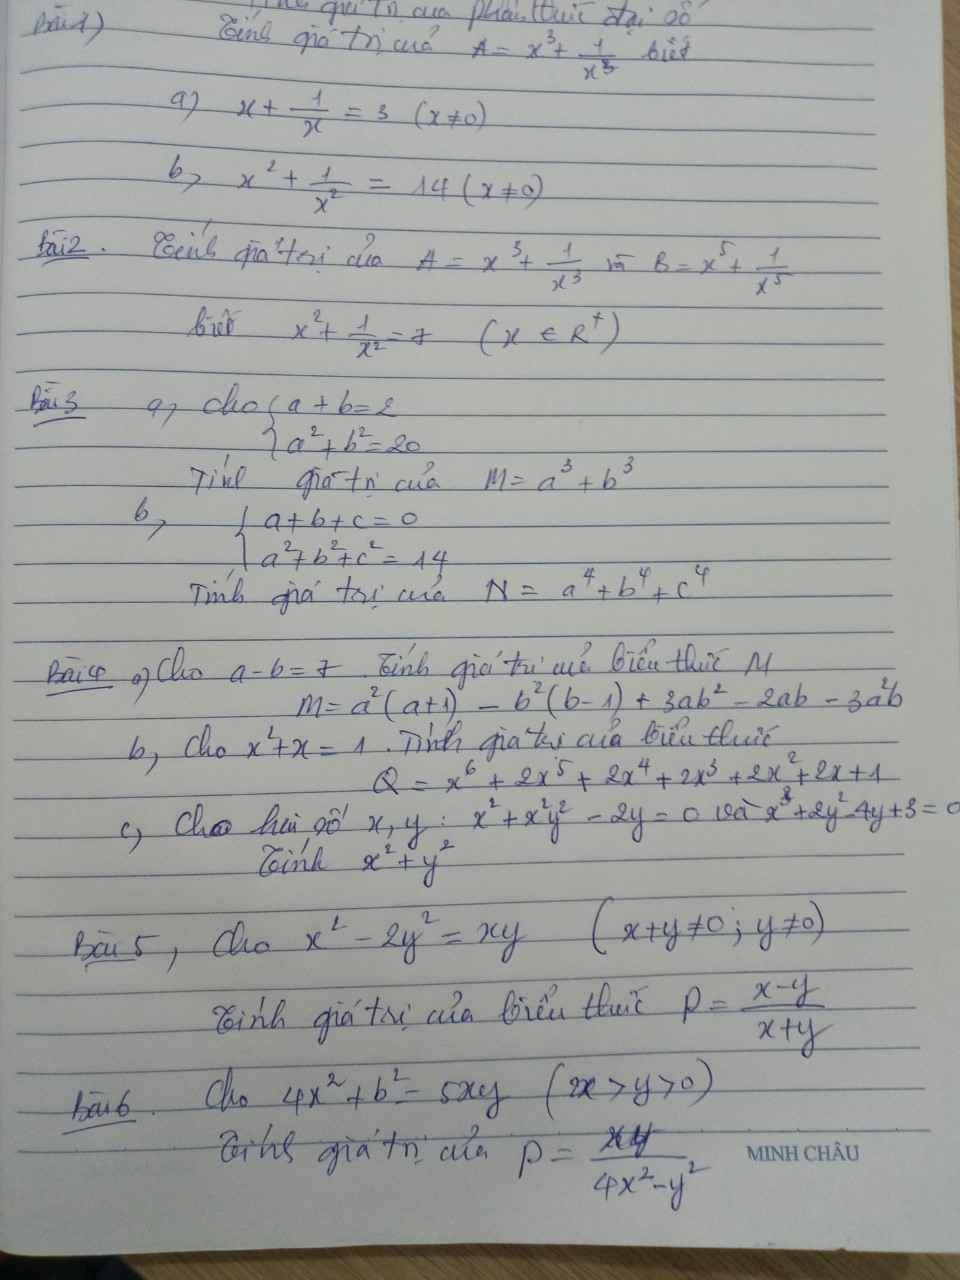 Tính giá trị của phân thức đại số
Bài 1) Tính giá trị của A = x³ + 1/x³ biết
a) x + 1/x = 3 (x ≠ 0)
b, x² + 1/x² = 14 (x ≠ 0)
Bài 2. Tính giá trị của A = x³ + 1/x³ và B = x⁵ + 1/x⁵
biết x² + 1/x² = 7 (x ∈ R⁺)
Bài 3 a, Cho { a + b = 2
a² + b² = 20
Tính giá trị của M = a³ + b³
b, { a + b + c = 0
a² + b² + c² = 14
Tính giá trị của N = a⁴ + b⁴ + c⁴
Bài 4 a) Cho a - b = 7. Tính giá trị của biểu thức M
M = a²(a+1) - b²(b-1) + 3ab² - 2ab - 3a²b
b, Cho x² + x = 1. Tính giá trị của biểu thức
Q = x⁶ + 2x⁵ + 2x⁴ + 2x³ + 2x² + 2x + 1
c, Cho hai số x, y : x² + x²y² - 2y = 0 và x³ + 2y² - 4y + 3 = 0
Tính x² + y²
Bài 5, Cho x² - 2y² = xy (x + y ≠ 0 ; y ≠ 0)
Tính giá trị của biểu thức P = (x-y)/(x+y)
Bài 6. Cho 4x² + b² = 5xy (2x > y > 0)
Tính giá trị của P = xy/(4x² - y²)
MINH CHÂU